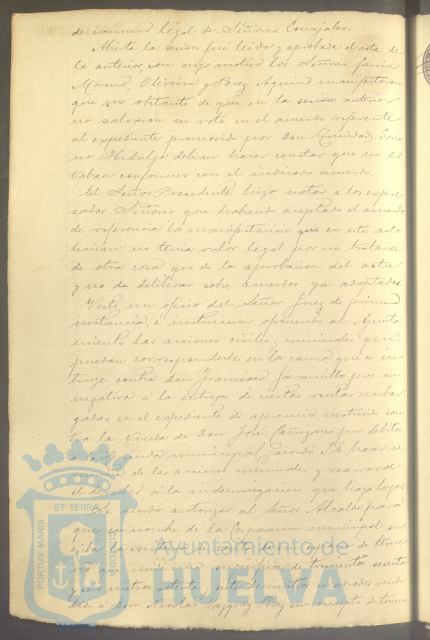 de número legal de Señores Concejales.
Abierta la sesion fue leida y aprobada el acta de
la anterior, con cuyo motivo los Señores García
Moreno, Oliveira y Perez Aquino manifestaron
que no obstante de que en la sesion anterior
no salvaron su voto en el acuerdo referente
al expediente promovido por Don Trinidad Soria
no Hidalgo debian hacer constar que no es
taban conformes con el indicado acuerdo.
El Señor Presidente hizo notar a los expre
sados Señores que habiendo aceptado el acuerdo
de referencia la manifestacion que en este acto
hacian no tenia valor legal por no tratarse
de otra cosa que de la aprobacion del acta
y no de deliberar sobre acuerdos ya adoptados
Visto un oficio del Señor Juez de primera
instancia é instruccion ofreciendo al Ayunta
miento las acciones civiles, criminales que
puedan corresponderle en la causa que se ins
truye contra Don Francisco Jaramillo por su
negativa a la entrega de ciertas rentas embar
gadas en el expediente de apremio instruido con
tra la Viuda de Don José por debitos
a la municipal, acordó S.E. hacer
de las acciones criminales y reservarse
el derecho a la indemnizacion que haya lugar
Se acordó autorizar al Señor Alcalde para
que en nombre de la Corporacion municipal
la de terre
no que mide una superficie de trescientos sesenta
metros setenta centimetros cuadrados vendi
dos a Don Nicolas Vazquez Perez en concepto de
PORTUS MARIS
ET TERRÆ
Ayuntamiento de
HUELVA